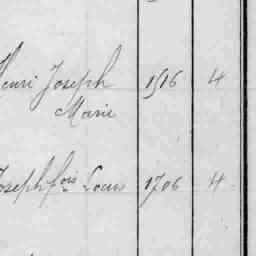 Henri Joseph 1516 4
Marie
Joseph fois Louis 1706 4